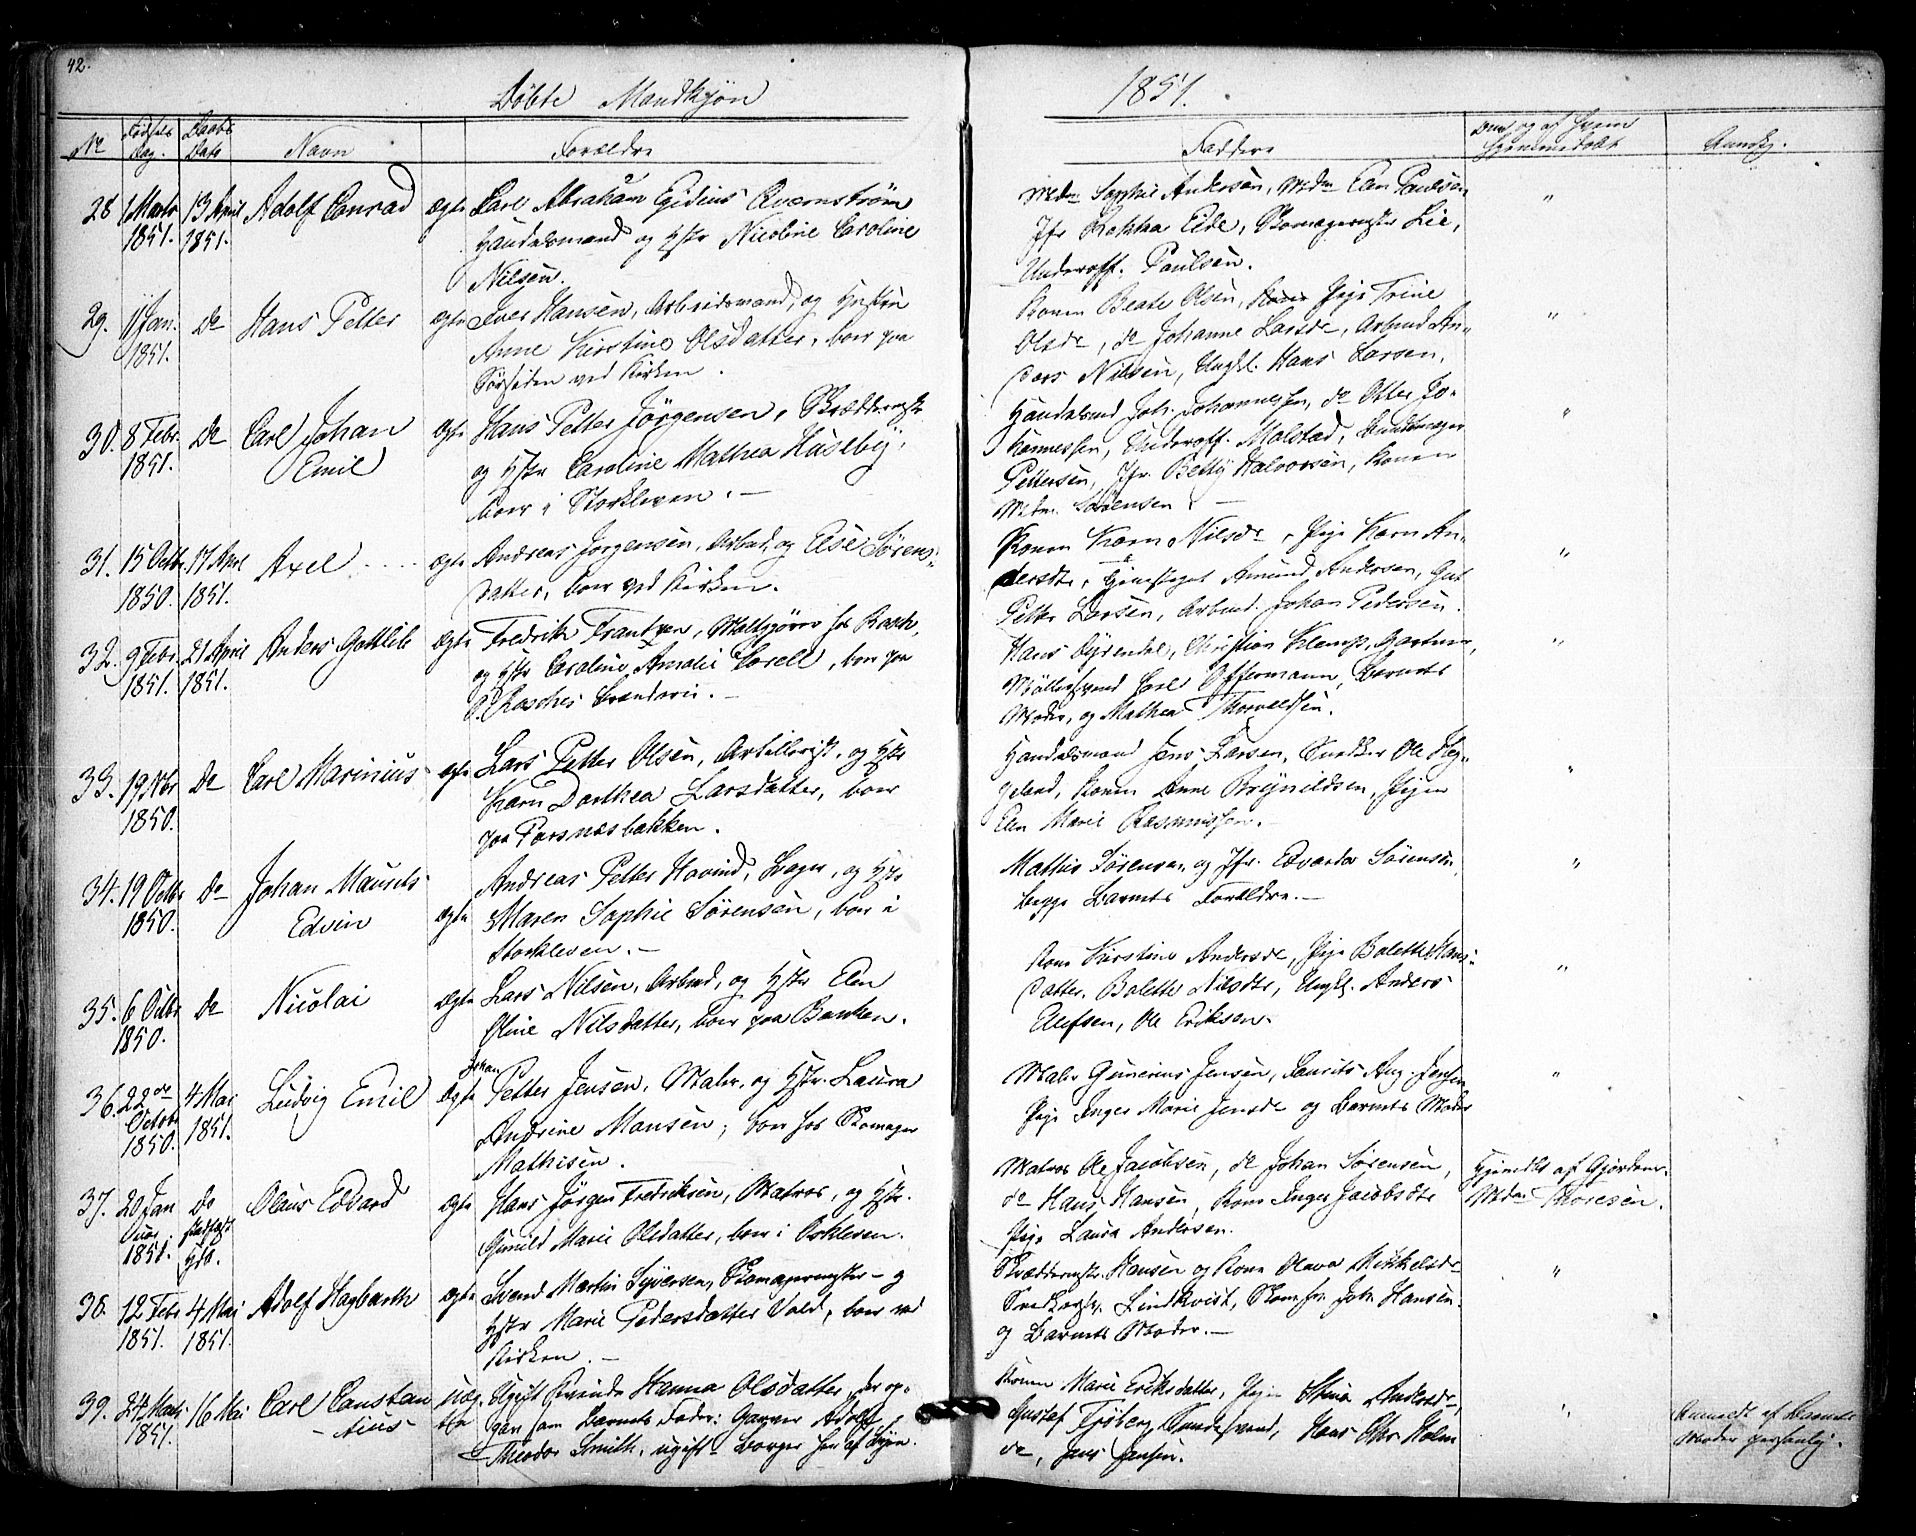 42.
Døbte Mandkjøn 1851.
No Fødsels Dag. Daabs Dato Navn Forældre Faddere Anmk.
28 1 Marts 1851. 13 April 1851. Adolf Conrad ægte Carl Abraham Egidius Qvarnstrøm
Handelsmand og Hstr Nicoline Caroline
Nilsen.
Mdm Sophie Andersen, Mdm Elen Paulsen
Jfr Eide, Skomagermester Lie,
Underoff. Paulsen.
"
29. 11 Jan. 1851. Do Hans Petter ægte Iver Hansen, Arbeidsmand, og Hustru
Anne Kirstine Olsdatter, boer paa
Sørsiden ved Kirken.
Konen Beate Olsen, Pige Trine
Olsdr, do Johanne Larsdr, Arbmd An-
ders Nilsen, Ungkl. Hans Larsen.
"
30. 8 Febr. 1851. Do Carl Johan Emil ægte Hans Petter Jörgensen, Skræddermstr
og Hstr Caroline Mathea Huseby,
boer i Storkleven.
Handelsmd Joh. Johannessen, do Otter Jo-
hannessen, Underoff. Molstad, Bundtmager
Pettersen, Jfr. Betty Halvorsen, Konen
Mdm. Sörensen.
"
31. 15 Octbr 1850. 17 April 1851. Axel ægte Andreas Jørgensen, Arbmd, og Else Sörens-
datter, boer ved Kirken.
Konen Karn Nilsdr, Pige Karn An-
dersdtr, Amund Andersen, Gut
Petter Larsen, Arbmd. Johan Pedersen.
"
32. 9 Febr. 1851. 21 April 1851. Anders Gottlieb ægte Fredrik Frantzen, Maltgjører hos Rasch,
og Hstr Caroline Amalie Corell, boer paa
P. Rasches Brænderie.
Hans Dyrendal, Christian Klemp, Gartner,
Møllersvend Carl Offermann, Barnets
Moder, og Mathea Thorvaldsen.
"
33. 19 Nbr 1850. Do Carl Marinius ægte Lars Petter Olsen, Artillerist, og Hstr
Karn Dorthea Larsdatter, boer
paa Torsnæsbakken.
Handelsmand Jens Larsen, Snedker Ole Hey-
geland, Konen Anne Brynildsen, Pigen
Elen Marie Rasmussen.
"
34. 19 Octbr 1850. Do Johan Maurits Edvin ægte Andreas Petter Hovind, Bager, og Hstr
Maren Sophie Sørensen, boer i
Storkleven.
Mathis Sørensen, og Jfr. Edvarda Sörensen,
begge Barnets Forældre.
"
35. 6 Octbr 1850. Do Nicolai ægte Lars Nilsen, Arbmd, og Hstr Elen
Oline Nilsdatter, boer paa Banken.
Kone Kirstine Andersdr, Pige Bolette Hans-
datter. Bolette Nilsdtr, Ungk. Anders
Elefsen, Ole Eriksen.
"
36. 22de Octobr 1850. 4 Mai 1851. Ludvig Emil ægte Johan
Petter Jensen, Maler, og Hstr. Laura
Andrine Monsen; boer hos Skomager
Mathisen.
Maler Gunerius Jensen, Laurits Aug. Jensen
Pige Inger Marie Jensdr og Barnets Moder
"
37. 20 Januar 1851. Do Olaus Edvard ægte Hans Jørgen Fredriksen, Matros, og Hstr.
Gunild Marie Olsdatter, boer i Oskleven.
Matros Ole Jacobsen, do Johan Sørensen,
do Hans Hansen, Kone Inger Jacobsdtr
Pige Laura Andersen.
Hjemdbt af Gjordem.
Mdm Thoresen.
38. 12 Febr 1851. 4 Mai 1851. Adolf Hagbarth ægte Svend Martin Syversen, Skomagermester - og
Hstr Marie Pedersdatter Vold, boer ved
Kirken.
Skræddermstr. Hansen og Kone Olava Mikkelsdr
Lindkvist, Joh. Hansen.
og Barnets Moder.
"
39. 24 Marts 1851. 16 Mai Carl Constantius uægte Ugift Qvinde Hanna Olsdatter, der op-
gav som Barnets Fader: Garver Adolf
Theodor Smith, ugift Borger Søn af Byen.
Konen Marie Eriksdatter, Pige Stina Andersdr,
Gustaf Fröberg, Svend, Hans Chr Holm
do, Jens Jensen.
"
Anmeldt af Barnets
Moder personlig.